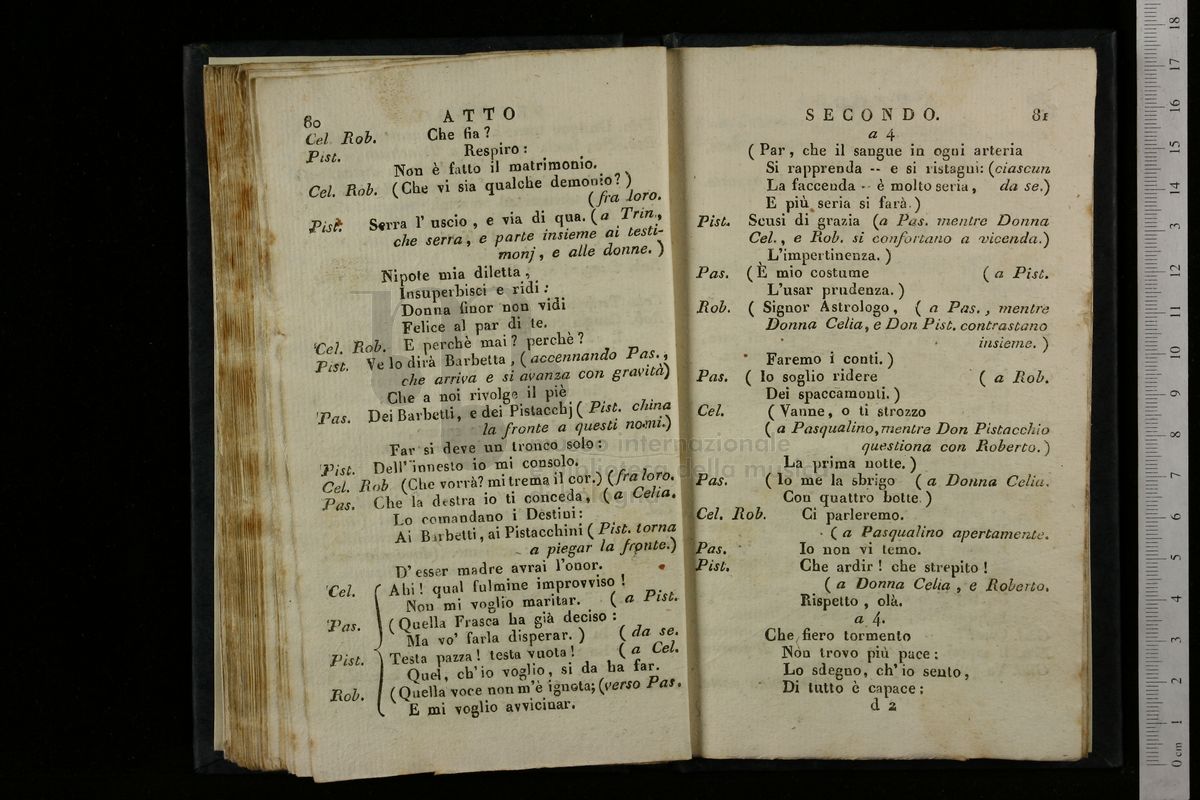 80
ATTO
Cel. Rob. Che fia?
Pist. Respiro:
Non è fatto il matrimonio.
Cel. Rob. (Che vi sia qualche demonio?)
(fra loro.
Pist. Serra l' uscio, e via di qua. (a Trin.,
che serra, e parte insieme ai testi-
monj, e alle donne.)
Nipote mia diletta,
Insuperbisci e ridi:
Donna finor non vidi
Felice al par di te.
Cel. Rob. E perchè mai? perchè?
Pist. Ve lo dirà Barbetta, (accennando Pas.,
che arriva e si avanza con gravità)
Che a noi rivolge il piè
Pas. Dei Barbetti, e dei Pistacchj (Pist. china
la fronte a questi nomi.)
Far si deve un tronco solo:
Pist. Dell' innesto io mi consolo.
Cel. Rob (Che vorrà? mi trema il cor.) (fra loro.
Pas. Che la destra io ti conceda, (a Celia.
Lo comandano i Destini:
Ai Barbetti, ai Pistacchini (Pist. torna
a piegar la fronte.)
D' esser madre avrai l'onor.
Cel. Ahi! qual fulmine improvviso!
Non mi voglio maritar. (a Pist.
Pas. (Quella Frasca ha già deciso:
Ma vo' farla disperar.) (da se.
Pist. Testa pazza! testa vuota! (a Cel.
Quel, ch' io voglio, si da ha far.
Rob. (Quella voce non m'è ignota; (verso Pas.
E mi voglio avvicinar.
SECONDO.
81
a 4
(Par, che il sangue in ogni arteria
Si rapprenda -- e si ristagni: (ciascun
La faccenda -- è molto seria, da se.)
E più seria si farà.)
Pist. Scusi di grazia (a Pas. mentre Donna
Cel., e Rob. si confortano a vicenda.)
L'impertinenza.)
Pas. (È mio costume (a Pist.
L'usar prudenza.)
Rob. (Signor Astrologo, (a Pas., mentre
Donna Celia, e Don Pist. contrastano
insieme.)
Faremo i conti.)
Pas. (Io soglio ridere (a Rob.
Dei spaccamonti.)
Cel. (Vanne, o ti strozzo
(a Pasqualino, mentre Don Pistacchio
questiona con Roberto.)
La prima notte.)
Pas. (Io me la sbrigo (a Donna Celia.
Con quattro botte.)
Cel. Rob. Ci parleremo.
(a Pasqualino apertamente.
Pas. Io non vi temo.
Pist. Che ardir! che strepito!
(a Donna Celia, e Roberto.
Rispetto, olà.
a 4.
Che fiero tormento
Non trovo più pace:
Lo sdegno, ch' io sento,
Di tutto è capace:
d 2